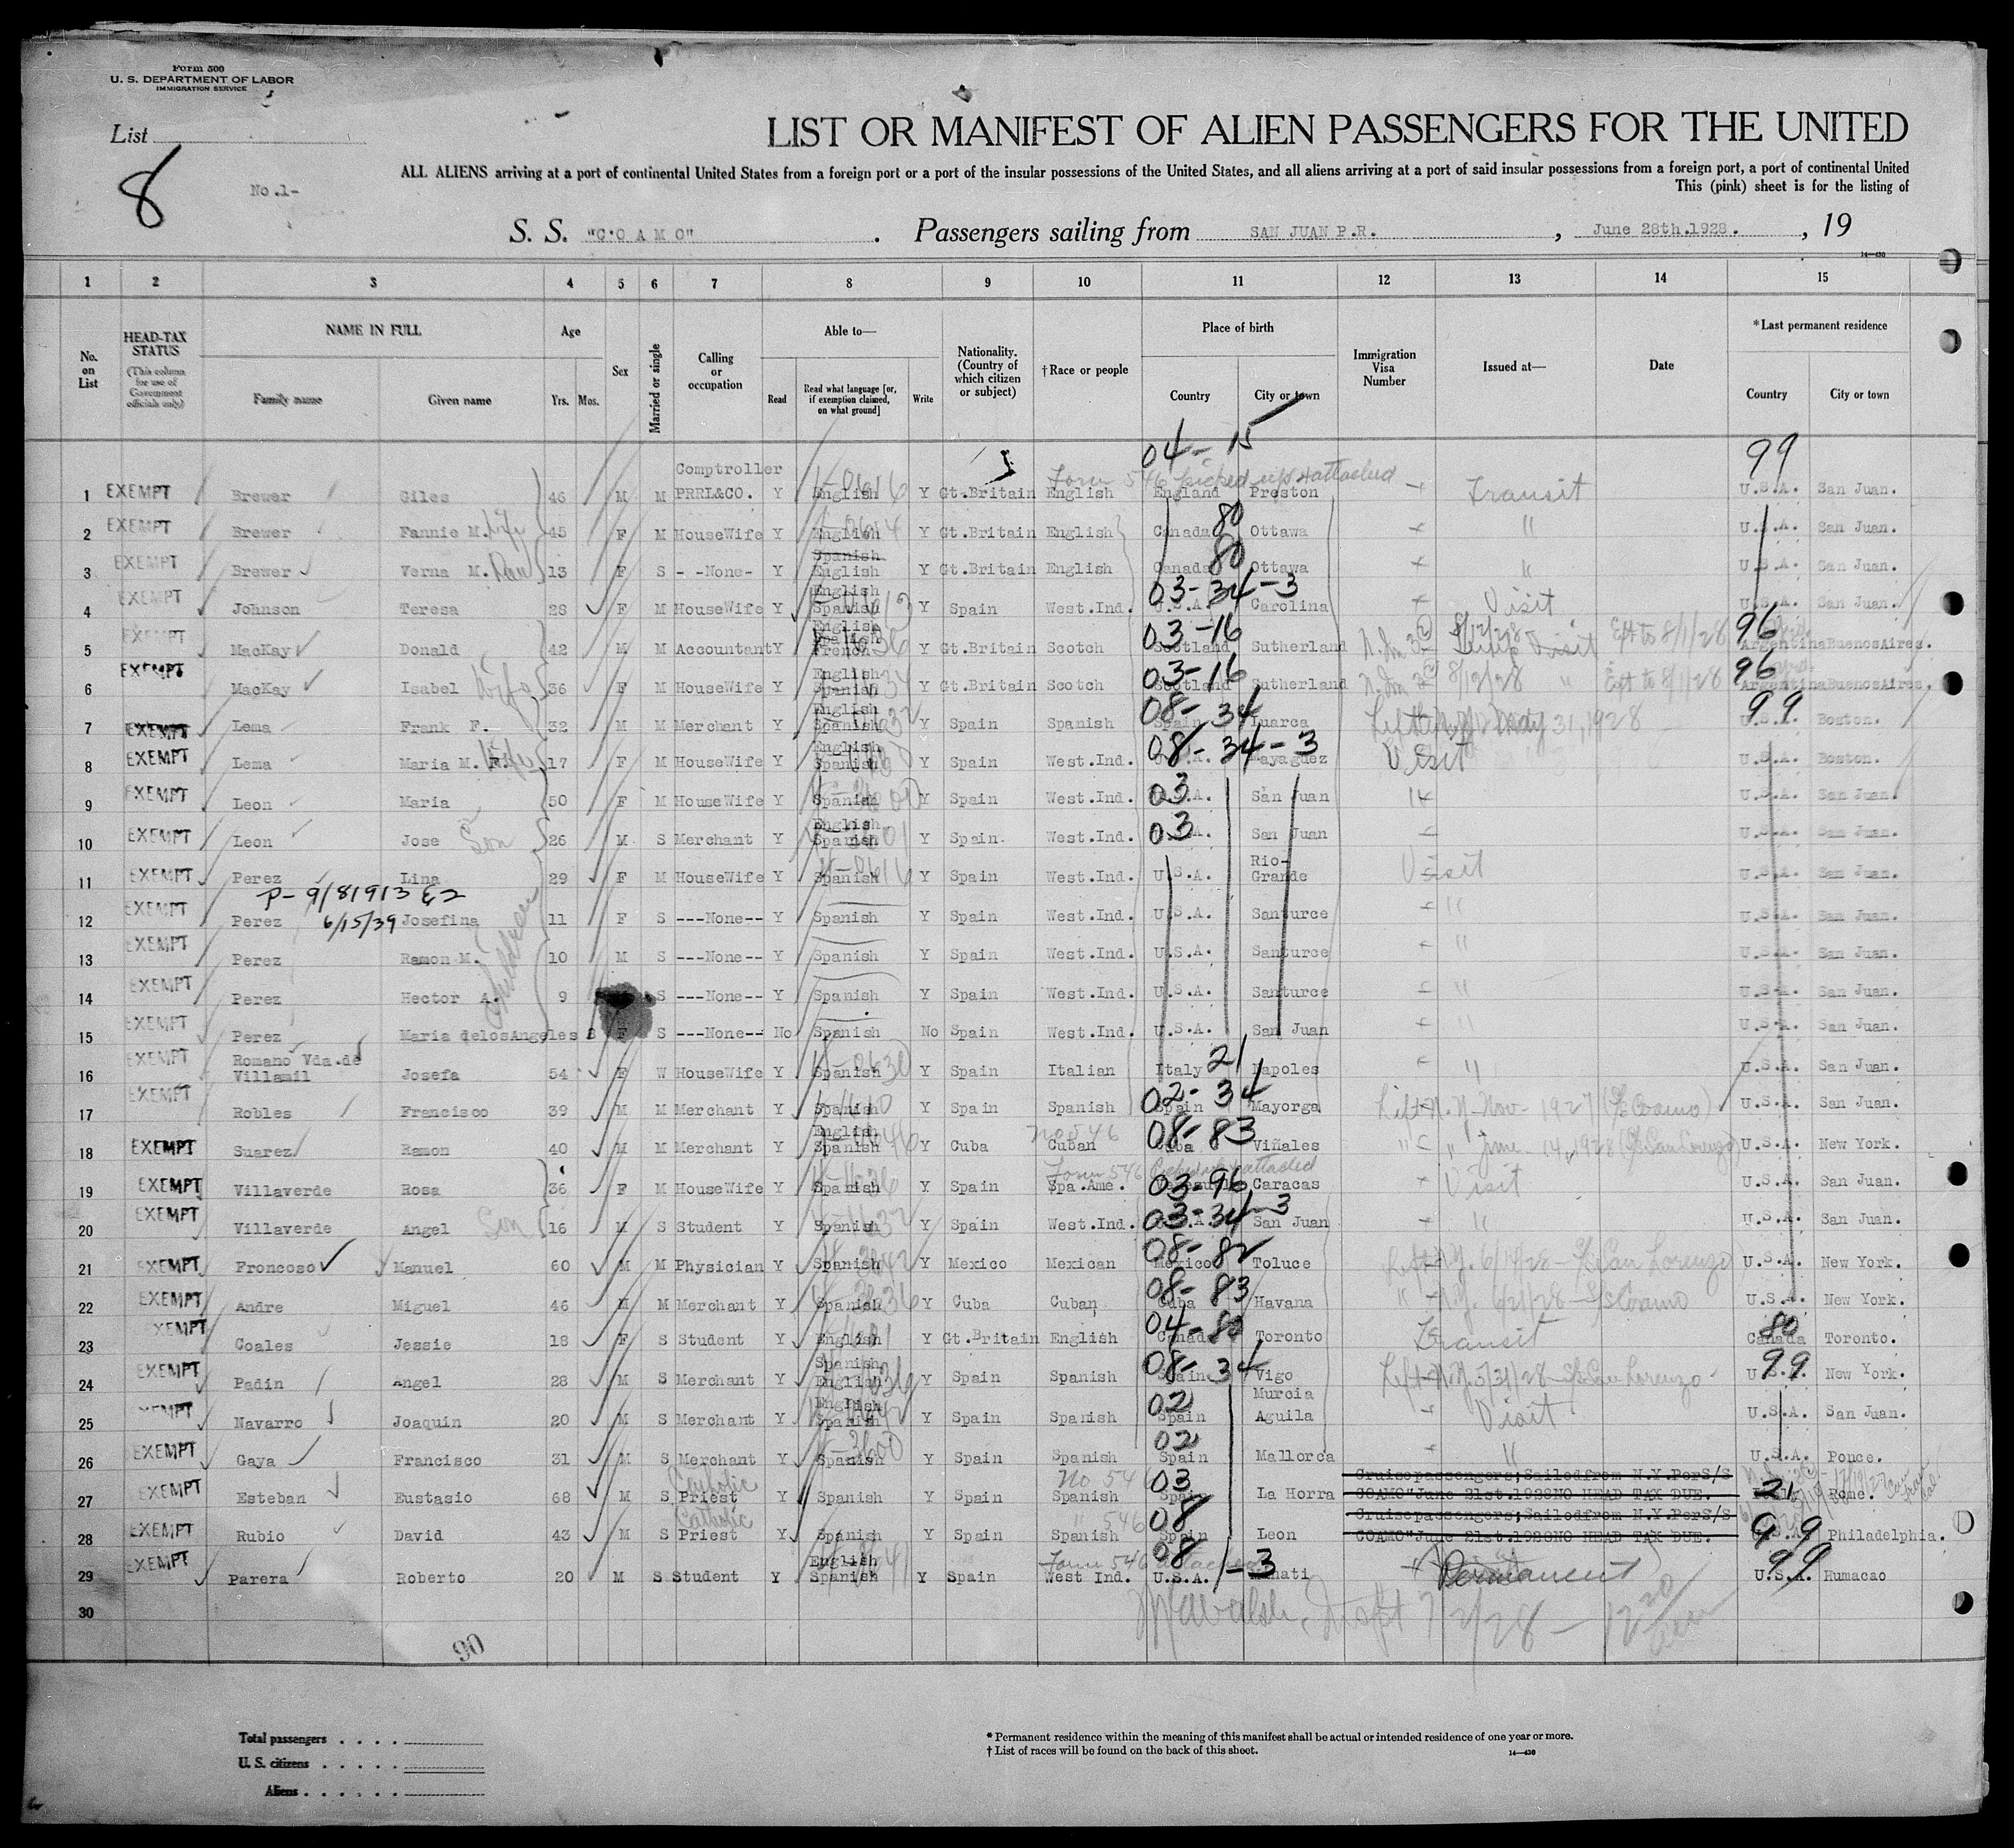 Form 500
U. S. DEPARTMENT OF LABOR
IMMIGRATION SERVICE
List
8
No.1-
LIST OR MANIFEST OF ALIEN PASSENGERS FOR THE UNITED
ALL ALIENS arriving at a port of continental United States from a foreign port or a port of the insular possessions of the United States, and all aliens arriving at a port of said insular possessions from a foreign port, a port of continental United
This (pink) sheet is for the listing of
S. S. "COAMO". Passengers sailing from SAN JUAN P.R., June 28th.1928., 19
14—430
1 2 3 4 5 6 7 8 9 10 11 12 13 14 15
No. on List
HEAD-TAX STATUS (This column for use of Government officials only)
NAME IN FULL Family name Given name
Age Yrs. Mos.
Sex
Married or single
Calling or occupation
Able to— Read Read what language [or, if exemption claimed, on what ground] Write
Nationality. (Country of which citizen or subject)
†Race or people
Place of birth Country City or town
Immigration Visa Number
Issued at—
Date
*Last permanent residence Country City or town
04-15 99
Form 546 picked up & attached
1 EXEMPT Brewer Giles 46 M M Comptroller PRRL&CO. Y English Y Gt.Britain English England Preston Transit U.S.A. San Juan.
2 EXEMPT Brewer Fannie M. Wife 45 F M HouseWife Y English Y Gt.Britain English Canada 80 Ottawa " U.S.A. San Juan.
3 EXEMPT Brewer Verna M. 13 F S - -None- Y Spanish English Y Gt.Britain English Canada 80 Ottawa " U.S.A. San Juan.
4 EXEMPT Johnson Teresa 28 F M HouseWife Y English Spanish Y Spain West.Ind. 03-34-3 U.S.A. Carolina Visit U.S.A. San Juan.
5 EXEMPT MacKay Donald 42 M M Accountant Y English Spanish French Y Gt.Britain Scotch 03-16 Scotland Sutherland 8/12/28 Visit Ext to 8/1/28 96 Argentina BuenosAires.
6 EXEMPT MacKay Isabel Wife 36 F M HouseWife Y English Spanish Y Gt.Britain Scotch 03-16 Scotland Sutherland 8/12/28 " Ext to 8/1/28 96 Argentina BuenosAires.
7 EXEMPT Lema Frank F. 32 M M Merchant Y English Spanish Y Spain Spanish 08-34 Spain Luarca Left N.Y. May 31, 1928 99 U.S.A. Boston.
8 EXEMPT Lema Maria M. F. Wife 17 F M HouseWife Y English Spanish Y Spain West.Ind. 08-34-3 U.S.A. Mayaguez Visit U.S.A. Boston.
9 EXEMPT Leon Maria 50 F M HouseWife Y Spanish Y Spain West.Ind. 03 U.S.A. San Juan U.S.A. San Juan.
10 EXEMPT Leon Jose Son 26 M S Merchant Y English Spanish Y Spain. West.Ind. 03 U.S.A. San Juan U.S.A. San Juan.
11 EXEMPT Perez Lina 29 F M HouseWife Y Spanish Y Spain West.Ind. U.S.A. Rio-Grande Visit U.S.A. San Juan.
P-9/81913 E2
6/15/39
12 EXEMPT Perez Josefina 11 F S ---None-- Y Spanish Y Spain West.Ind. U.S.A. Santurce " U.S.A. San Juan.
Children
13 EXEMPT Perez Ramon M. 10 M S ---None-- Y Spanish Y Spain West.Ind. U.S.A. Santurce " U.S.A. San Juan.
14 EXEMPT Perez Hector A. 9 S ---None-- Y Spanish Y Spain West.Ind. U.S.A. Santurce " U.S.A. San Juan.
15 EXEMPT Perez Maria delosAngeles 3 F S ---None-- No Spanish No Spain West.Ind. U.S.A. San Juan " U.S.A. San Juan.
16 EXEMPT Romano Vda.de Villamil Josefa 54 F W HouseWife Y Spanish Y Spain Italian Italy 21 Napoles " U.S.A. San Juan.
17 EXEMPT Robles Francisco 39 M M Merchant Y Spanish Y Spain Spanish 02-34 Spain Mayorga Left N.Y. Nov- 1927 (S/S Coamo) U.S.A. San Juan.
18 EXEMPT Suarez Ramon 40 M M Merchant Y English Spanish Y Cuba no 546 Cuban 08-83 Cuba Viñales " " June 14, 1928 (S/S San Lorenzo) U.S.A. New York.
19 EXEMPT Villaverde Rosa 36 F M HouseWife Y Spanish Y Spain Form 546 attached Spa.Ame. 03-96 Venezuela Caracas Visit U.S.A. San Juan.
20 EXEMPT Villaverde Angel Son 16 M S Student Y Spanish Y Spain West.Ind. 03-34-3 U.S.A. San Juan " U.S.A. San Juan.
21 EXEMPT Froncoso Manuel 60 M M Physician Y Spanish Y Mexico Mexican 08-82 Mexico Toluce Left N.Y. 6/14/28 - S/S San Lorenzo U.S.A. New York.
22 EXEMPT Andre Miguel 46 M M Merchant Y Spanish Y Cuba Cuban 08-83 Cuba Havana " N.Y. 6/21/28 - S/S Coamo U.S.A. New York.
23 EXEMPT Coales Jessie 18 F S Student Y English Y Gt.Britain English 04-80 Canada Toronto Transit 80 Canada Toronto.
24 EXEMPT Padin Angel 28 M S Merchant Y Spanish English Y Spain Spanish 08-34 Spain Vigo Left N.Y. 5/31/28 - S/S San Lorenzo 99 U.S.A. New York.
25 EXEMPT Navarro Joaquin 20 M S Merchant Y English Spanish Y Spain Spanish 02 Spain Murcia Aguila Visit U.S.A. San Juan.
26 EXEMPT Gaya Francisco 31 M S Merchant Y Spanish Y Spain Spanish 02 Spain Mallorca " U.S.A. Ponce.
27 EXEMPT Esteban Eustasio 68 M S Catholic Priest Y Spanish Y Spain No 546 Spanish 03 Spain La Horra Cruisepassengers;Sailedfrom N.Y.PerS/S COAMO"June 21st.1928NO HEAD TAX DUE. 21 Rome.
28 EXEMPT Rubio David 43 M S Catholic Priest Y Spanish Y Spain " 546 Spanish 08 Spain Leon Cruisepassengers;Sailedfrom N.Y.PerS/S COAMO"June 21st.1928NO HEAD TAX DUE. 99 U.S.A. Philadelphia.
29 EXEMPT Parera Roberto 20 M S Student Y English Spanish Y Spain Form 546 attached West Ind. 08 U.S.A. -3 Manati Permanent 99 U.S.A. Humacao
30
90
Total passengers
U. S. citizens
Aliens
* Permanent residence within the meaning of this manifest shall be actual or intended residence of one year or more.
† List of races will be found on the back of this sheet.
14—430